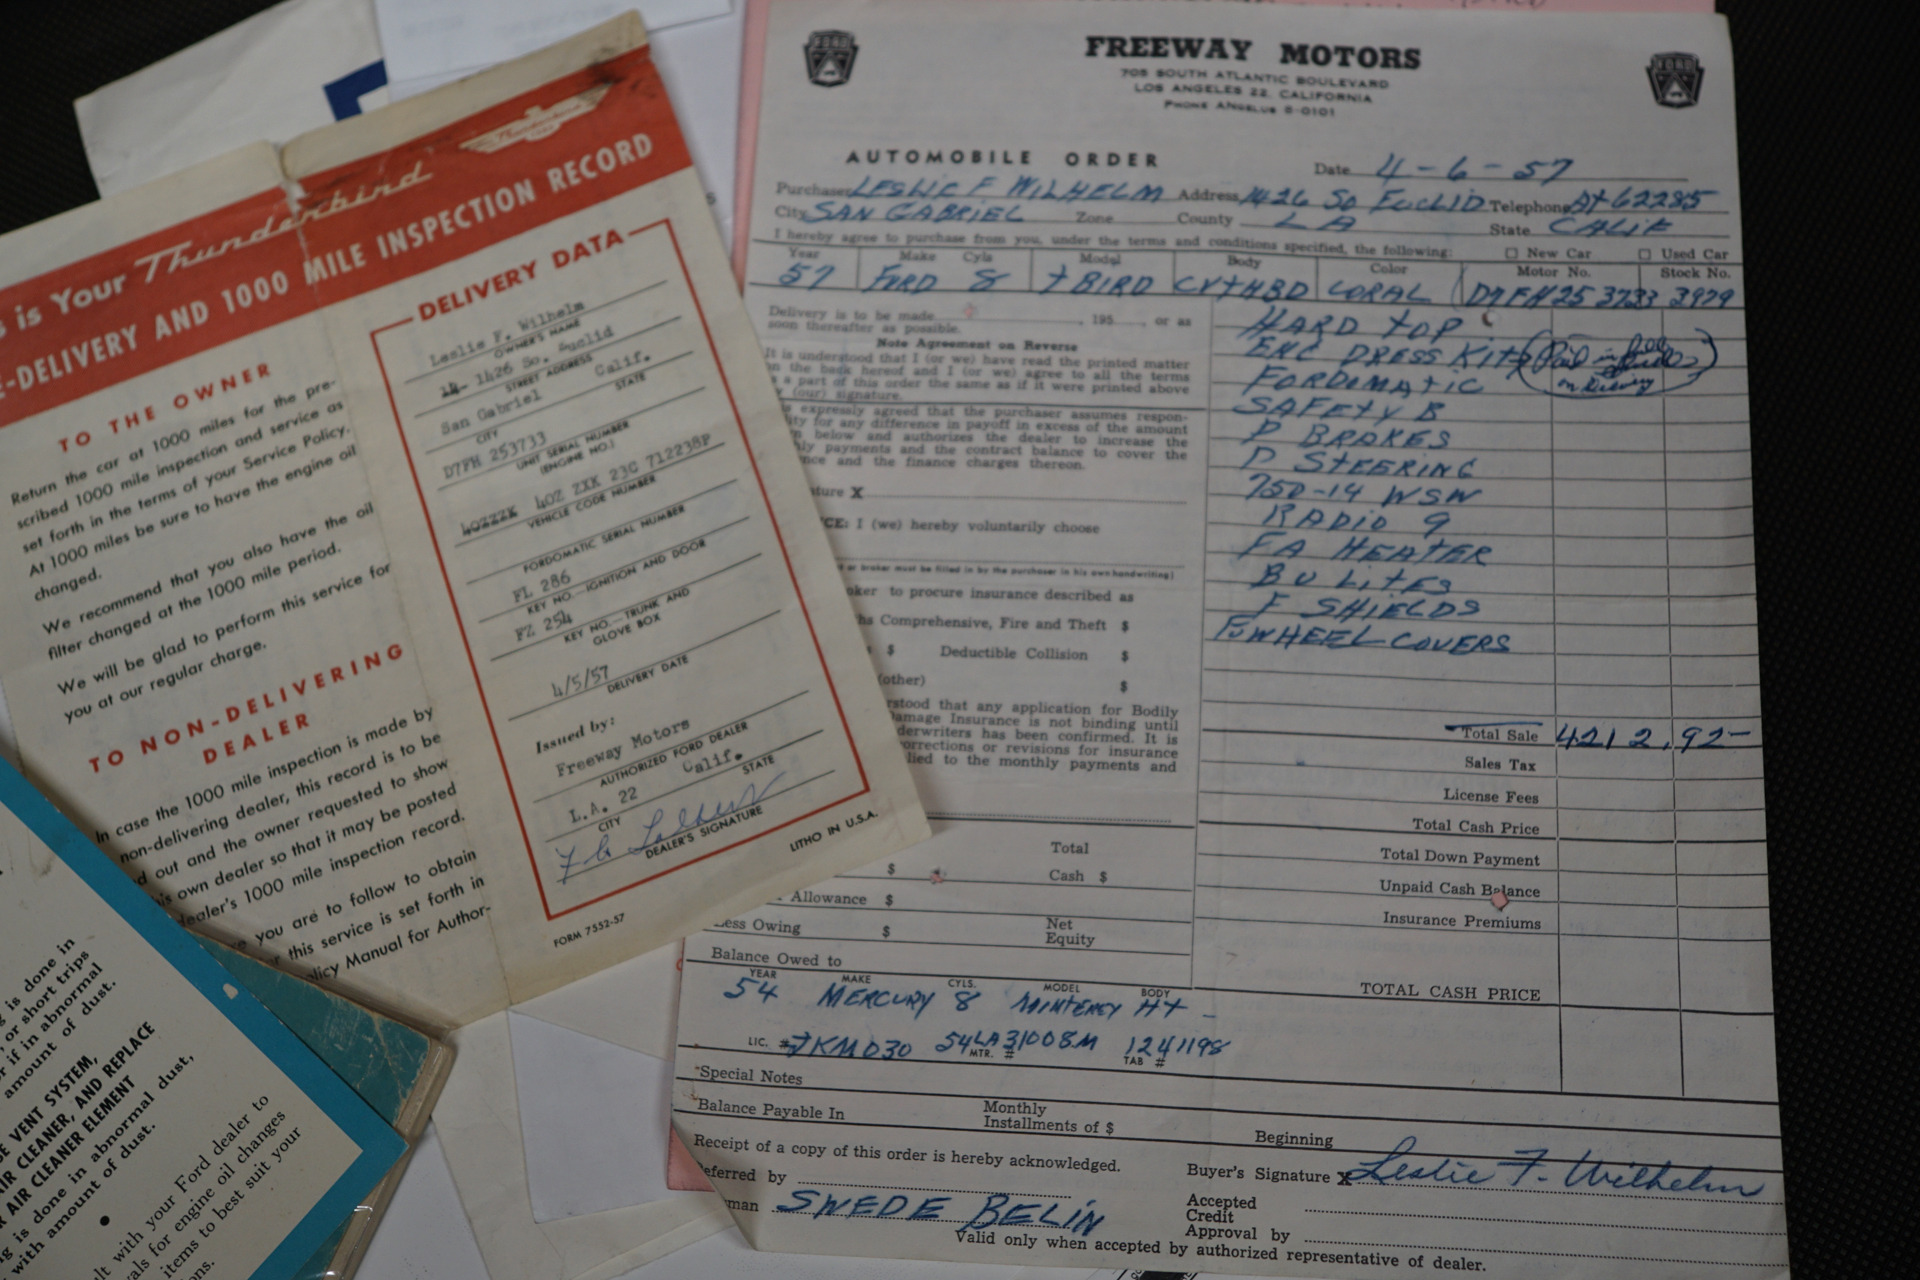 is Your Thunderbird
E-DELIVERY AND 1000 MILE INSPECTION RECORD
Thunderbird
TO THE OWNER
Return the car at 1000 miles for the pre-
scribed 1000 mile inspection and service as
set forth in the terms of your Service Policy.
At 1000 miles be sure to have the engine oil
changed.
We recommend that you also have the oil
filter changed at the 1000 mile period.
We will be glad to perform this service for
you at our regular charge.
TO NON-DELIVERING
DEALER
In case the 1000 mile inspection is made by
non-delivering dealer, this record is to be
d out and the owner requested to show
is own dealer so that it may be posted
dealer's 1000 mile inspection record.
you are to follow to obtain
this service is set forth in
olicy Manual for Author-
DELIVERY DATA
Leslie F. Wilhelm
OWNER'S NAME
14- 1426 So. Euclid
STREET ADDRESS
San Gabriel Calif.
CITY STATE
D7FH 253733
UNIT SERIAL NUMBER
(ENGINE NO.)
40ZZZK 40Z ZXK 23G 712238P
VEHICLE CODE NUMBER
FORDOMATIC SERIAL NUMBER
FL 286
KEY NO.—IGNITION AND DOOR
FZ 254
KEY NO.—TRUNK AND
GLOVE BOX
4/5/57
DELIVERY DATE
Issued by:
Freeway Motors
AUTHORIZED FORD DEALER
L.A. 22 Calif.
CITY STATE
DEALER'S SIGNATURE
LITHO IN U.S.A.
FORM 7552-57
g is done in
, or short trips
r if in abnormal
amount of dust.
E VENT SYSTEM,
AIR CLEANER, AND REPLACE
AIR CLEANER ELEMENT
g is done in abnormal dust,
with amount of dust.
lt with your Ford dealer to
vals for engine oil changes
items to best suit your
ons.
FORD FORD
FREEWAY MOTORS
705 SOUTH ATLANTIC BOULEVARD
LOS ANGELES 22, CALIFORNIA
PHONE ANGELUS 8-0101
AUTOMOBILE ORDER
Date 4-6-57
Purchaser LESLIE F WILHELM Address 1426 So EUCLID Telephone AT 62285
City SAN GABRIEL Zone County L A State CALIF
I hereby agree to purchase from you, under the terms and conditions specified, the following: New Car Used Car
Year Make Cyls Model Body Color Motor No. Stock No.
57 FORD 8 T BIRD CVTHBD CORAL D7FH253733 3979
Delivery is to be made 195 , or as
soon thereafter as possible.
Note Agreement on Reverse
It is understood that I (or we) have read the printed matter
on the back hereof and I (or we) agree to all the terms
a part of this order the same as if it were printed above
(our) signature.
expressly agreed that the purchaser assumes respon-
ity for any difference in payoff in excess of the amount
n below and authorizes the dealer to increase the
ly payments and the contract balance to cover the
nce and the finance charges thereon.
ature X
CE: I (we) hereby voluntarily choose
or broker must be filled in by the purchaser in his own handwriting)
oker to procure insurance described as
hs Comprehensive, Fire and Theft $
$ Deductible Collision $
(other) $
rstood that any application for Bodily
Damage Insurance is not binding until
derwriters has been confirmed. It is
corrections or revisions for insurance
lied to the monthly payments and
HARD TOP
ENG DRESS KIT (Paid in full on Delivery)
FORDOMATIC
SAFETY B
P BRAKES
P STEERING
750-14 WSW
RADIO 9
FA HEATER
B U LITES
F SHIELDS
FUWHEEL COVERS
Total Sale 4212.92
Sales Tax
License Fees
Total Cash Price
Total Down Payment
Unpaid Cash Balance
Insurance Premiums
TOTAL CASH PRICE
Total
$ Cash $
Allowance $
Less Owing $ Net
Equity
Balance Owed to
YEAR MAKE CYLS. MODEL BODY
54 MERCURY 8 MONTEREY HT
LIC. # 7KM030 54LA31008M 1241198
MTR. # TAB #
Special Notes
Balance Payable In Monthly
Installments of $ Beginning
Receipt of a copy of this order is hereby acknowledged.
Referred by
Buyer's Signature X Leslie F. Wilhelm
man SWEDE BELIN
Accepted
Credit
Approval by
Valid only when accepted by authorized representative of dealer.